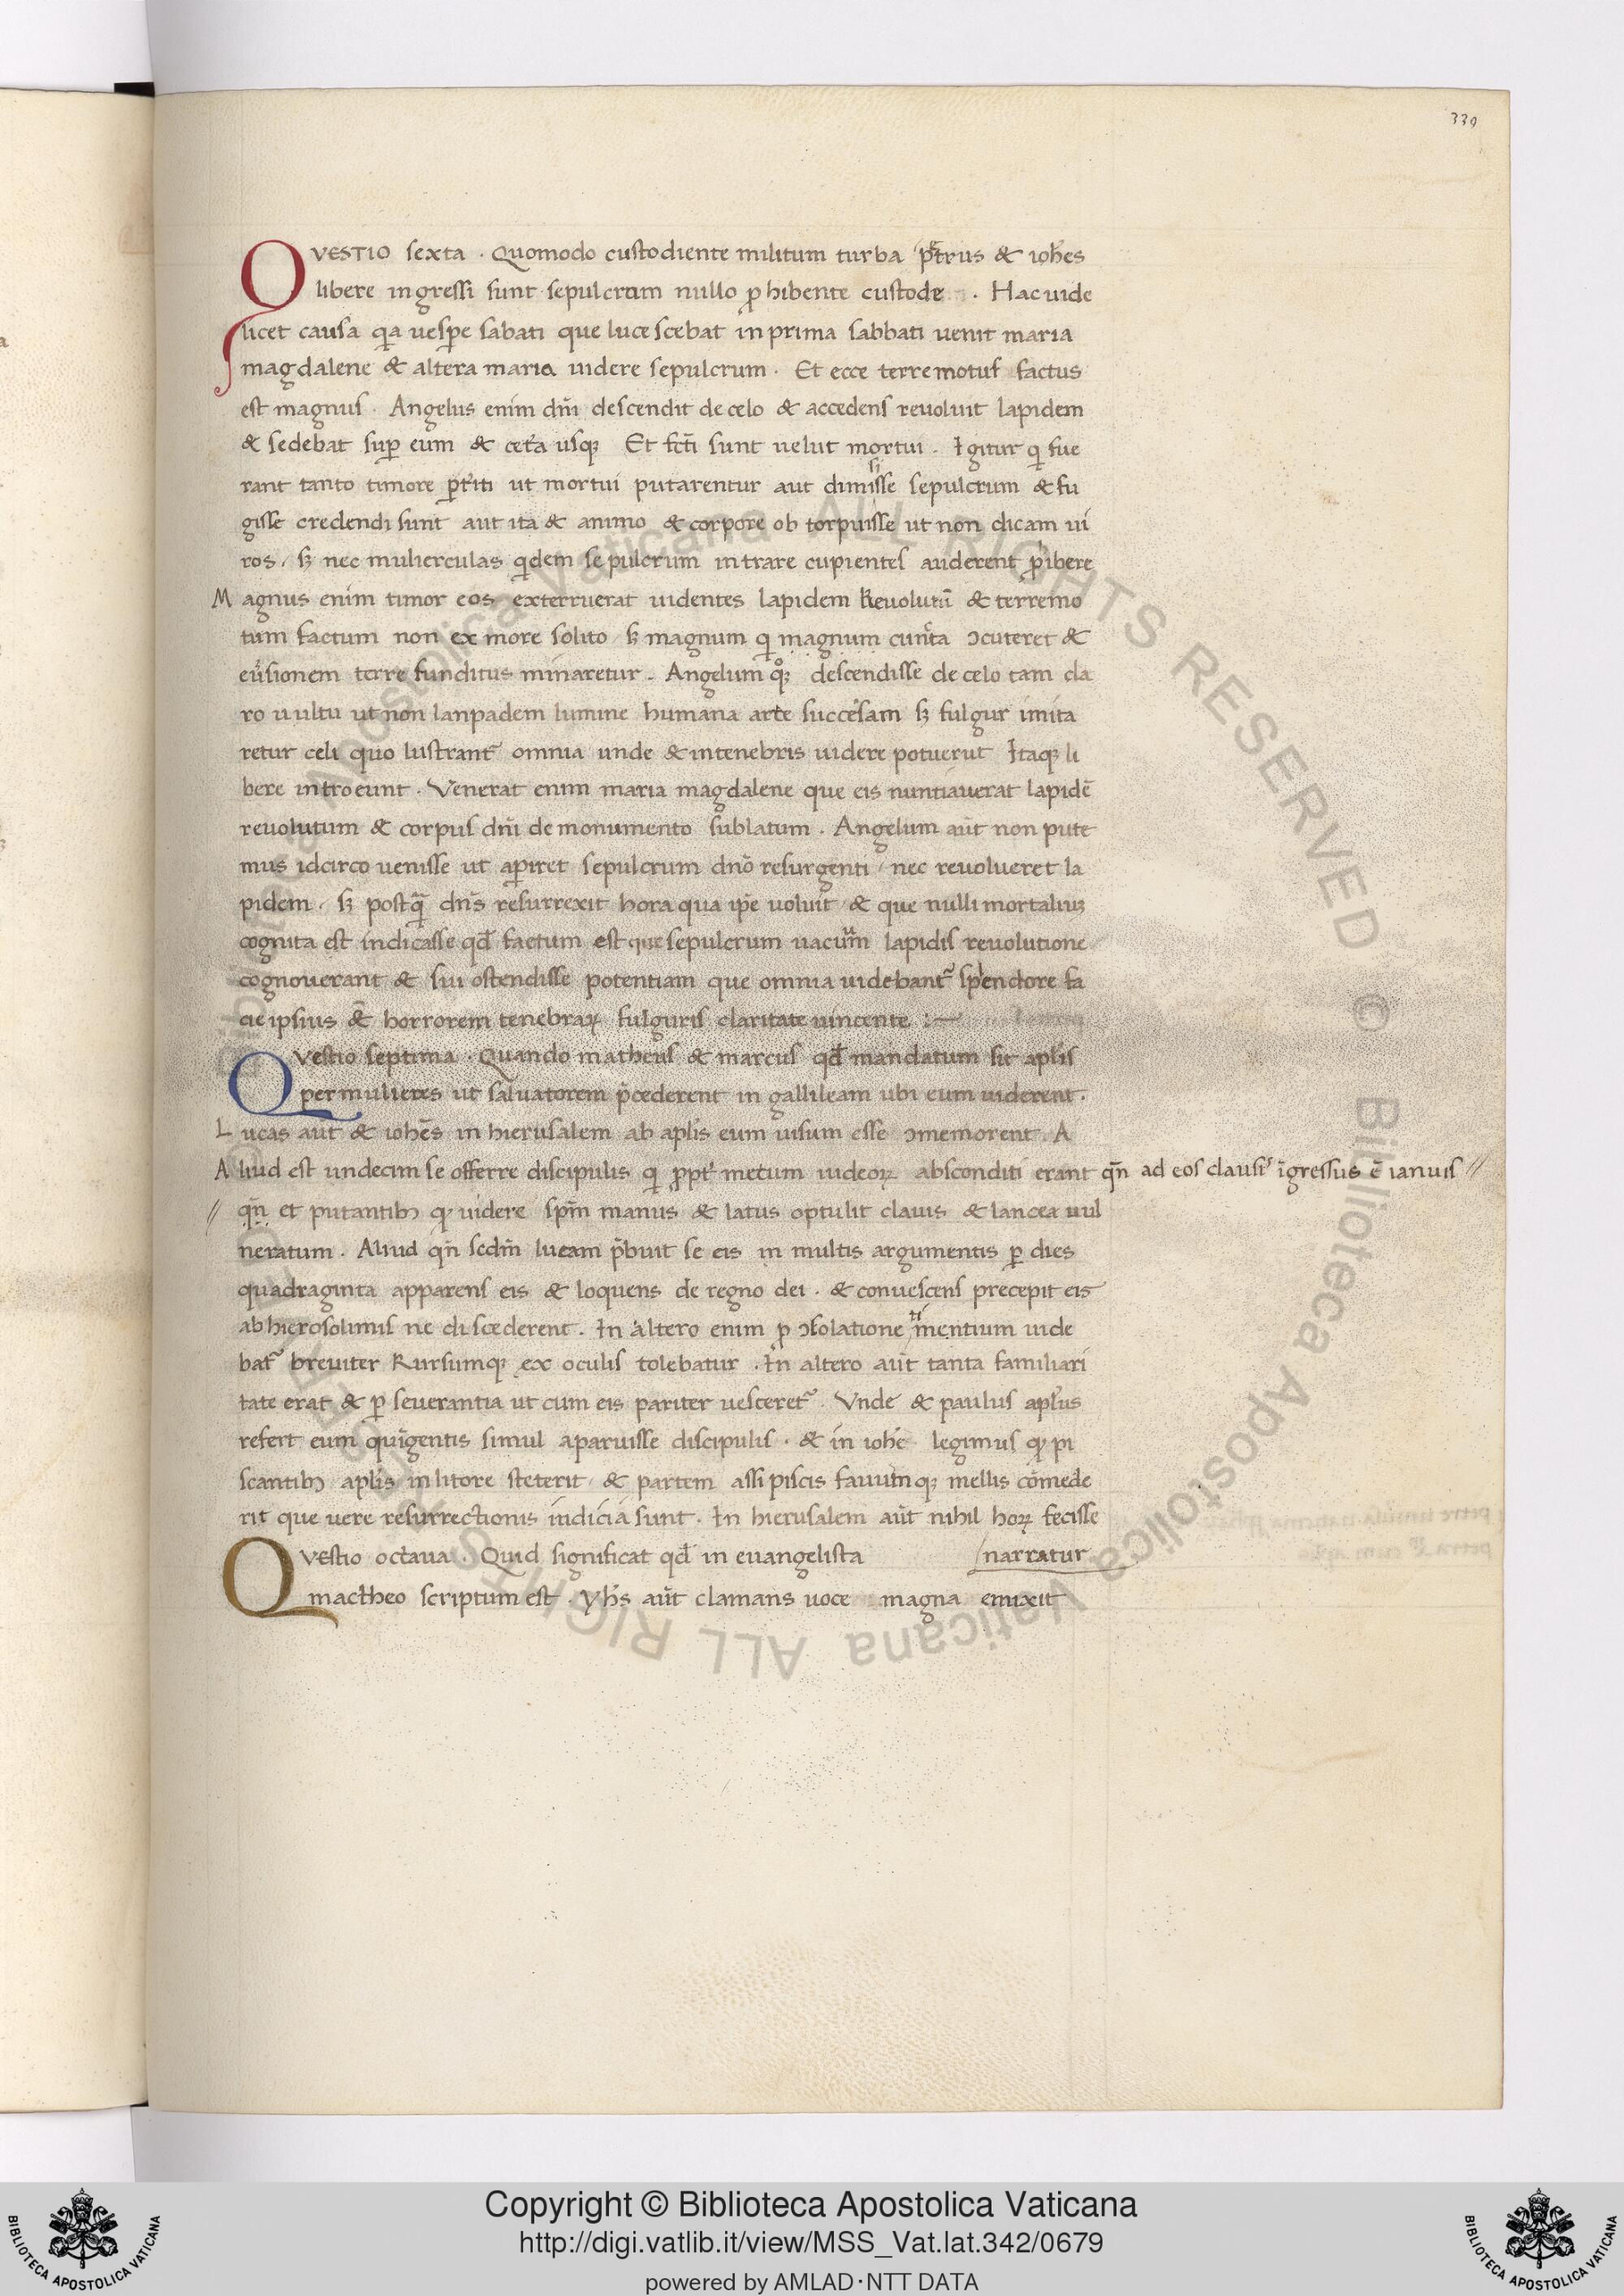 339
QVESTIO sexta . Quomodo custodiente militum turba petrus & ioh̄es
libere ingressi sunt sepulcrum nullo ꝓhibente custode . Hac uide
licet causa qa uespe sabati que lucescebat in prima sabbati uenit maria
magdalene & altera maria uidere sepulcrum . Et ecce terremotus factus
est magnus . Angelus enim dn̄i descendit de celo & accedens reuoluit lapidem
& sedebat suꝑ eum & cet̉a usqꝫ Et fct̄i sunt uelut mortui . Igitur qi fue
rant tanto timore ꝑt̉iti ut mortui putarentur aut dimisisse sepulcrum & fu
gisse credendi sunt aut ita & animo & corpore obtorpuisse ut non dicam ui
ros / sꝫ nec mulierculas qidem sepulcrum intrare cupientes auderent ꝓibere
Magnus enim timor eos exterruerat uidentes lapidem Reuolutū & terremo
tum factum non ex more solito / sꝫ magnum qi magnum cuncta ↄcuteret &
eu̓sionem terre funditus minaretur . Angelum qoꝫ descendisse de celo tam cla
ro uultu ut non lanpadem lumine humana arte succesam sꝫ fulgur imita
retur celi quo lustrant̉ omnia unde & in tenebris uidere potuerut Itaqꝫ li
bere introeunt . Venerat enim maria magdalene que eis nuntiauerat lapidē
reuolutum & corpus dn̄i de monumento sublatum . Angelum aūt non pute
mus idcirco uenisse ut aꝑiret sepulcrum dn̄o resurgenti / nec reuolueret la
pidem / sꝫ postq̄ dn̄s resurrexit hora qua ip̄e uoluit / & que nulli mortaliuꝫ
cognita est indicasse qd̄ factum est que sepulcrum uacuum lapidis reuolutione
cognouerant & sui ostendisse potentiam que omnia uidebant̉ splendore fa
cie ipsius & horrorem tenebraꝝ fulguris claritate uincente :—
Questio septima . Quando matheus & marcus qd̄ mandatum sit apl̄is
per mulieres ut saluatorem p̄cederent in gallileam ubi eum uiderent .
Lucas aūt & ioh̄es in hierusalem ab apl̄is eum uisum esse ↄmemorent . A
Aliud est undecim se offerre discipulis qi ꝓpt̉ metum iudeoꝝ absconditi erant qn̄ ad eos clausis īgressus ē ianuis //
// qn̄ et putantibꝫ qꝫ uidere spm̄ manus & latus optulit clauis & lancea uul
neratum . Aliud qn̄ sedm̄ lucam p̄buit se eis in multis argumentis ꝑ dies
quadraginta apparens eis & loquens de regno dei . & conuescens precepit eis
ab hierosolimis ne discederent . In altero enim ꝑ ↄsolatione timentium uide
bat̉ breuiter Rursumqꝫ ex oculis tolebatur . In altero aūt tanta familiari
tate erat & ꝑseuerantia ut cum eis pariter uesceret̉ . Vnde & paulus apl̄us
refert eum quīgentis simul aparuisse discipulis . & in ioh̄e legimus qꝫ pi
scantibꝫ apl̄is in litore steterit / & partem assi piscis fauumqꝫ mellis cōmede
rit que uere resurrectionis indicia sunt . In hierusalem aūt nihil hoꝝ fecisse
narratur
Questio octaua . Quid significat qd̄ in euangelista
mactheo scriptum est . yh̄s aūt clamans uoce magna emixit
Copyright © Biblioteca Apostolica Vaticana
http://digi.vatlib.it/view/MSS_Vat.lat.342/0679
powered by AMLAD·NTT DATA
BIBLIOTECA APOSTOLICA VATICANA
BIBLIOTECA APOSTOLICA VATICANA
© Biblioteca Apostolica Vaticana ALL RIGHTS RESERVED